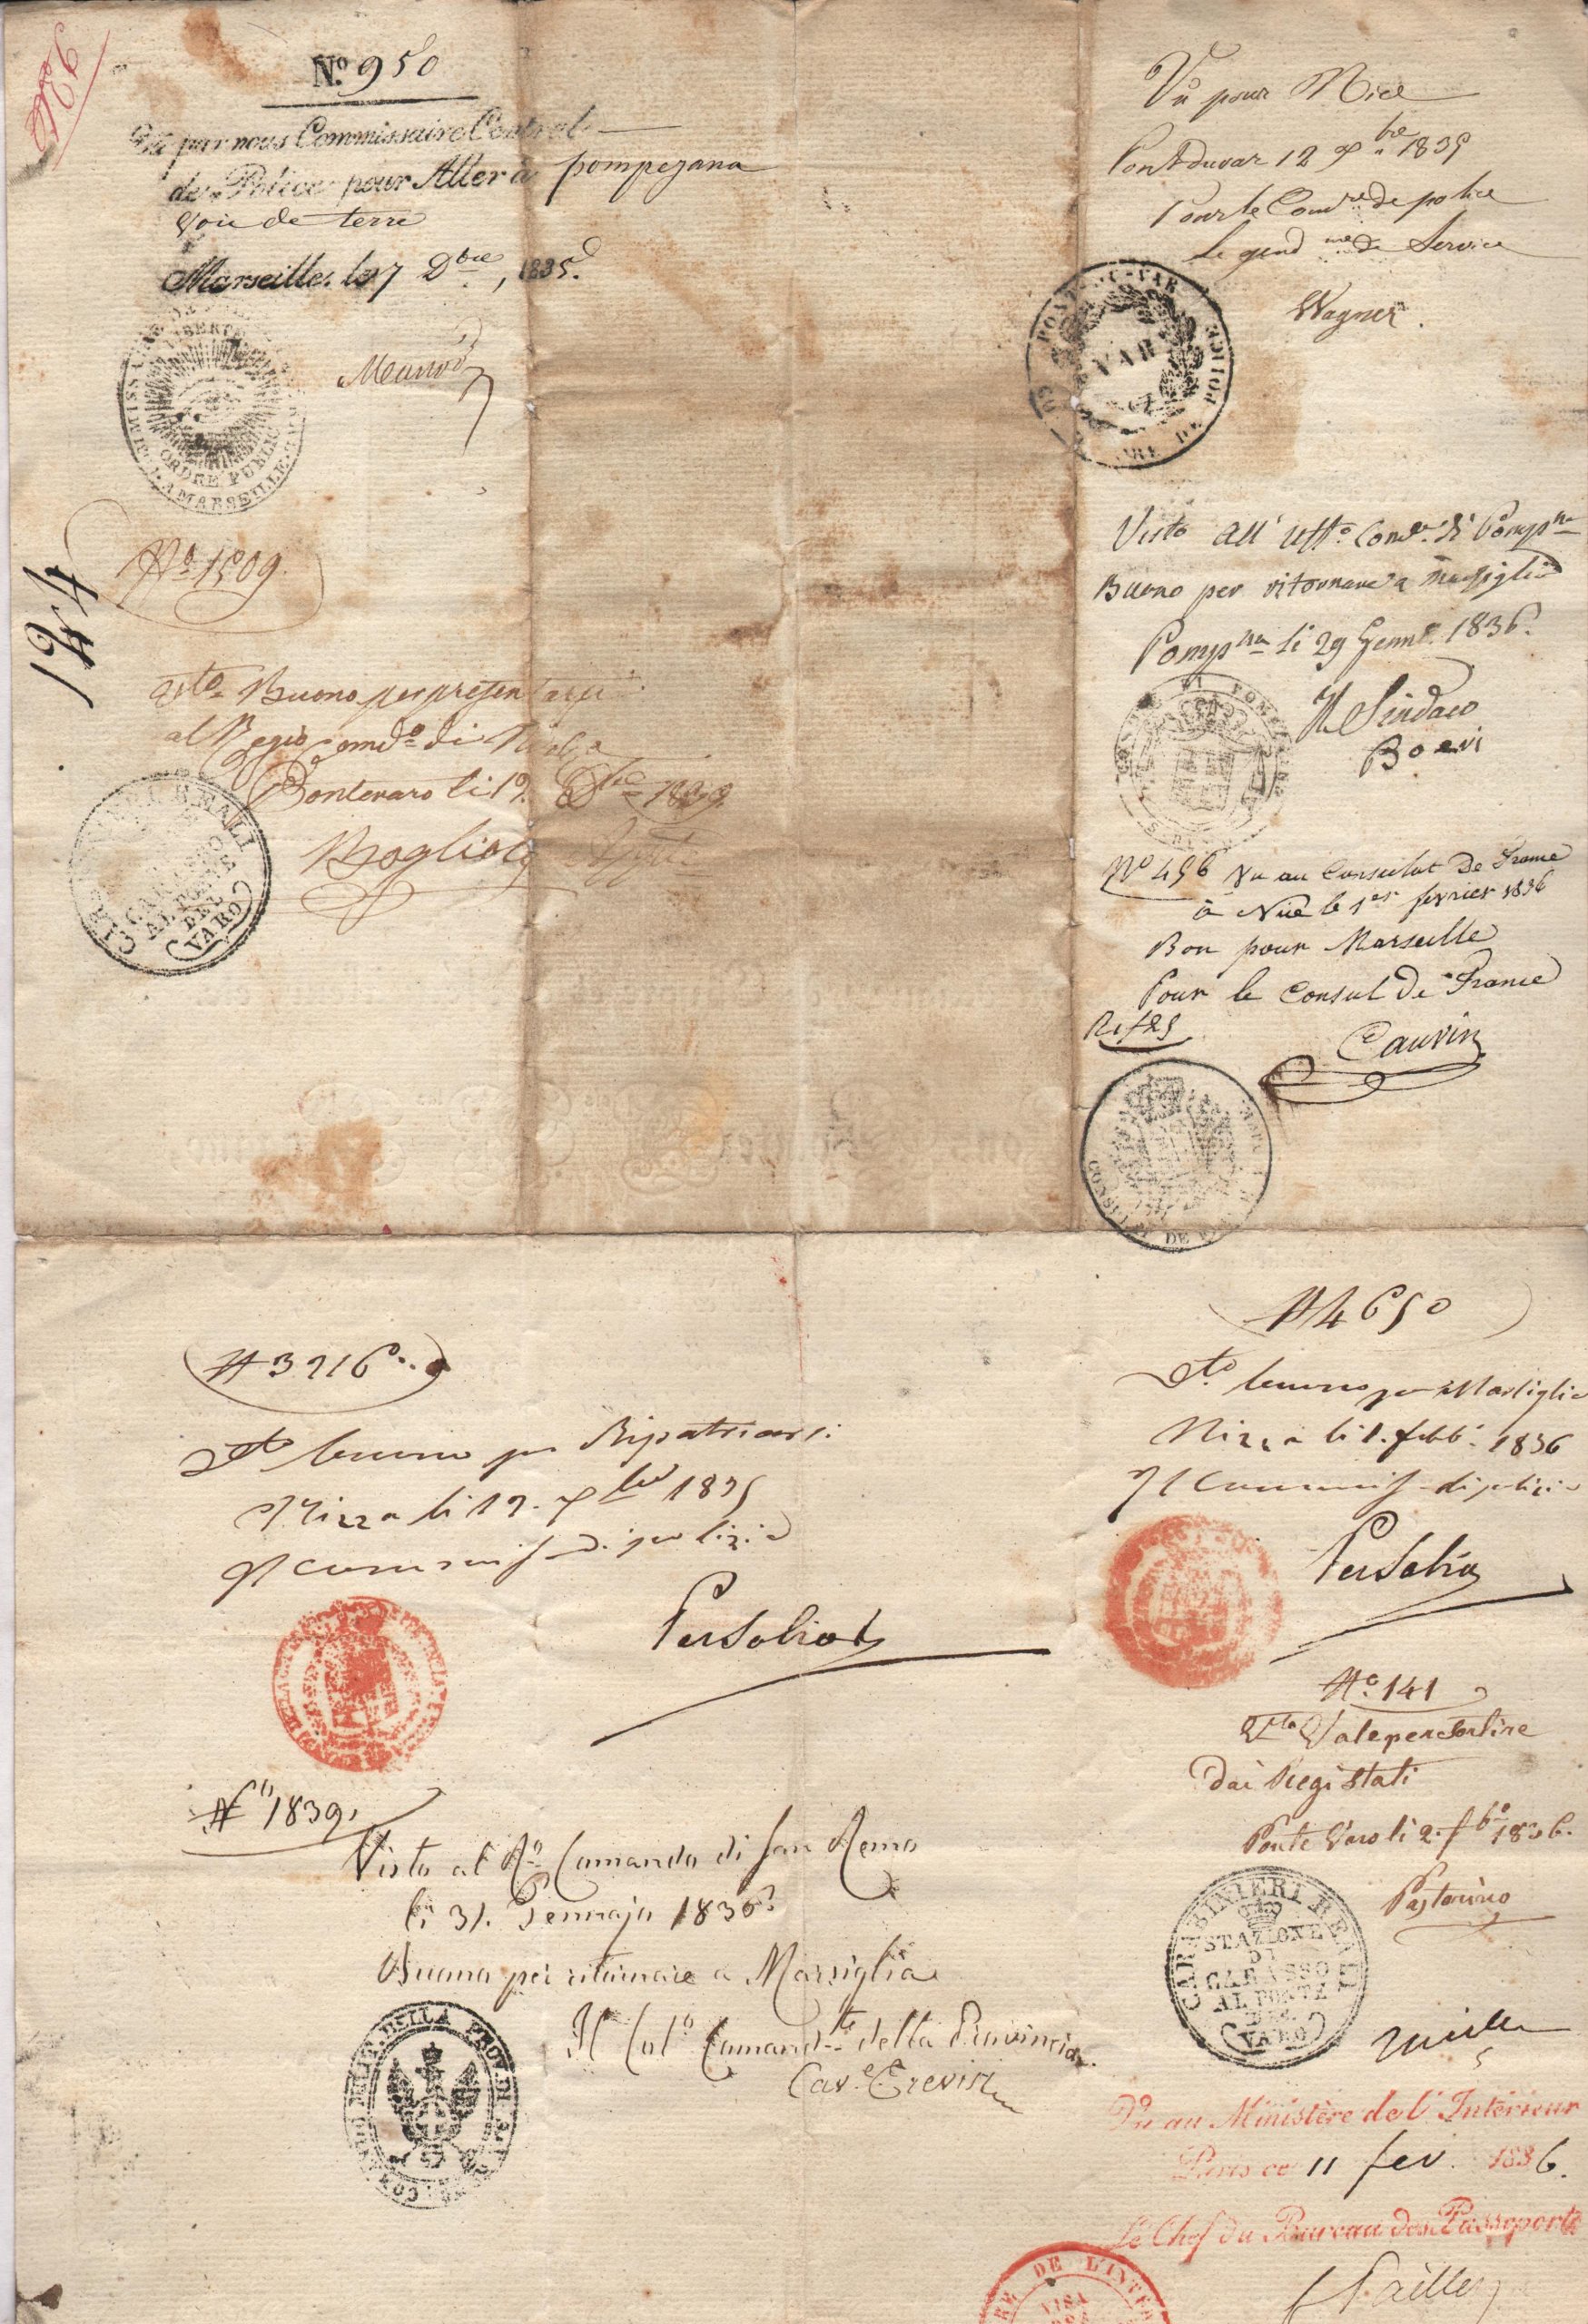 No. 950
Vu par nous Commissaire Central
de Police pour Aller à pompejana
Voie de terre
Marseille, le 7 Dbre, 1835.
LIBERTÉ
ORDRE PUBLIC
A MARSEILLE
No. 1509.
124
Visto Buono per presentarsi
al Regio Comdo. di
Pontevaro li 12
CARABINIERI REALI
AL PONTE
DEL
VARO
Vu pour Nice
Pont du var 12 Xbre 1835
Pour le Comre de police
le gendme de Service
Wagner.
POLICE
VAR
Visto all' uffo. Comle. di Pompna
Buono per ritornare a Marsiglia
Pompna li 29 Genno. 1836.
Il Sindaco
Boeri
No 456 Vu au Consulat De France
à Nice le 1er fevrier 1836
Bon pour Marseille
Pour le Consul De France
Cauvin
CONSULAT DE
N 3216
Vto buono per Ripatriarsi.
Nizza li 12. Xbre 1835
Il Commiss. di polizia
No 1839.
Visto al Ro. Comando di San Remo
li 31. Gennajo 1836
Buono per ritornare a Marsiglia
Il Colo. Comandte. della Provincia.
Cav.e
DELLA PROV. DI
N 4650
Vto. buono per Marsiglia
Nizza li 1. febb. 1836
Il Commiss. di polizia
No. 141
Vto Vale per Sortire
dai Regi Stati
Ponte Varo li 2. fbo 1836.
Pastorino
CARABINIERI REALI
STAZIONE
DI
CARASSO
AL PONTE
DEL
VARO
Vu au Ministère de l'Intérieur
Paris ce 11 fev. 1836.
Le Chef du Bureau des Passeports
DE L'INTÉ
VISA